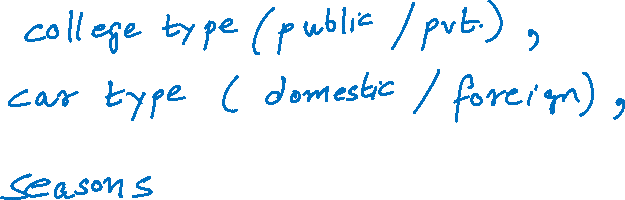 college type (public / pvt.),
car type ( domestic / foreign),
seasons